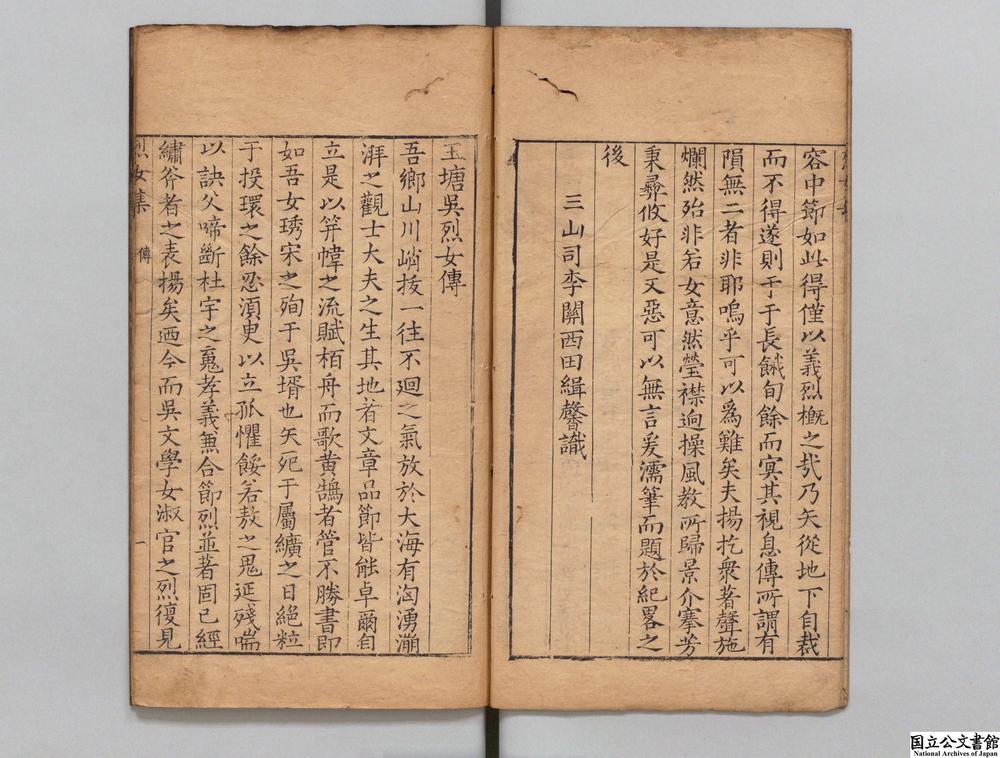 容中節如此得僅以義烈概之哉乃矢從地下自裁
而不得遂則于于長餓旬餘而冥其視息傳所謂有
隕無二者非耶嗚乎可以爲難矣夫揚扢衆著聲施
爛然殆非若女意然瑩襟逈操風教所歸景介搴芳
秉彛攸好是又惡可以無言爰濡筆而題於紀畧之
後
三山司李關西田緝馨識
玉塘吳烈女傳
吾鄉山川峭拔一往不迴之氣放於大海有洶湧漰
湃之觀士大夫之生其地者文章品節皆能卓爾自
立是以笄幃之流賦栢舟而歌黄鵠者管不勝書即
如吾女琇宋之殉于吳壻也矢死于屬纊之日絶粒
于投環之餘忍須臾以立孤懼餒若敖之鬼延殘喘
以訣父啼斷杜宇之魂孝義兼合節烈並著固已經
繡斧者之表揚矣迺今而吳文學女淑官之烈復見
烈女集
傳
一
国立公文書館
National Archives of Japan